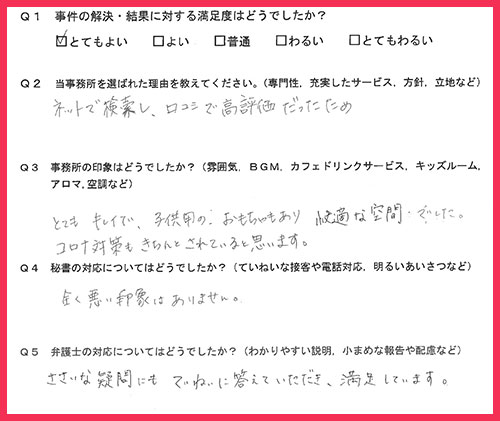 Q1 事件の解決・結果に対する満足度はどうでしたか？
☑とてもよい □よい □普通 □わるい □とてもわるい
Q2 当事務所を選ばれた理由を教えてください。（専門性，充実したサービス，方針，立地など）
ネットで検索し、口コミで高評価だったため
Q3 事務所の印象はどうでしたか？（雰囲気，ＢＧＭ，カフェドリンクサービス，キッズルーム，
アロマ,空調など）
とても キレイで、子供用の、おもちゃもあり 快適な空間・でした。
コロナ対策もきちんとされていると思います。
Q4 秘書の対応についてはどうでしたか？（ていねいな接客や電話対応，明るいあいさつなど）
全く悪い印象はありません。
Q5 弁護士の対応についてはどうでしたか？（わかりやすい説明，小まめな報告や配慮など）
ささいな疑問にも ていねいに答えていただき、満足しています。